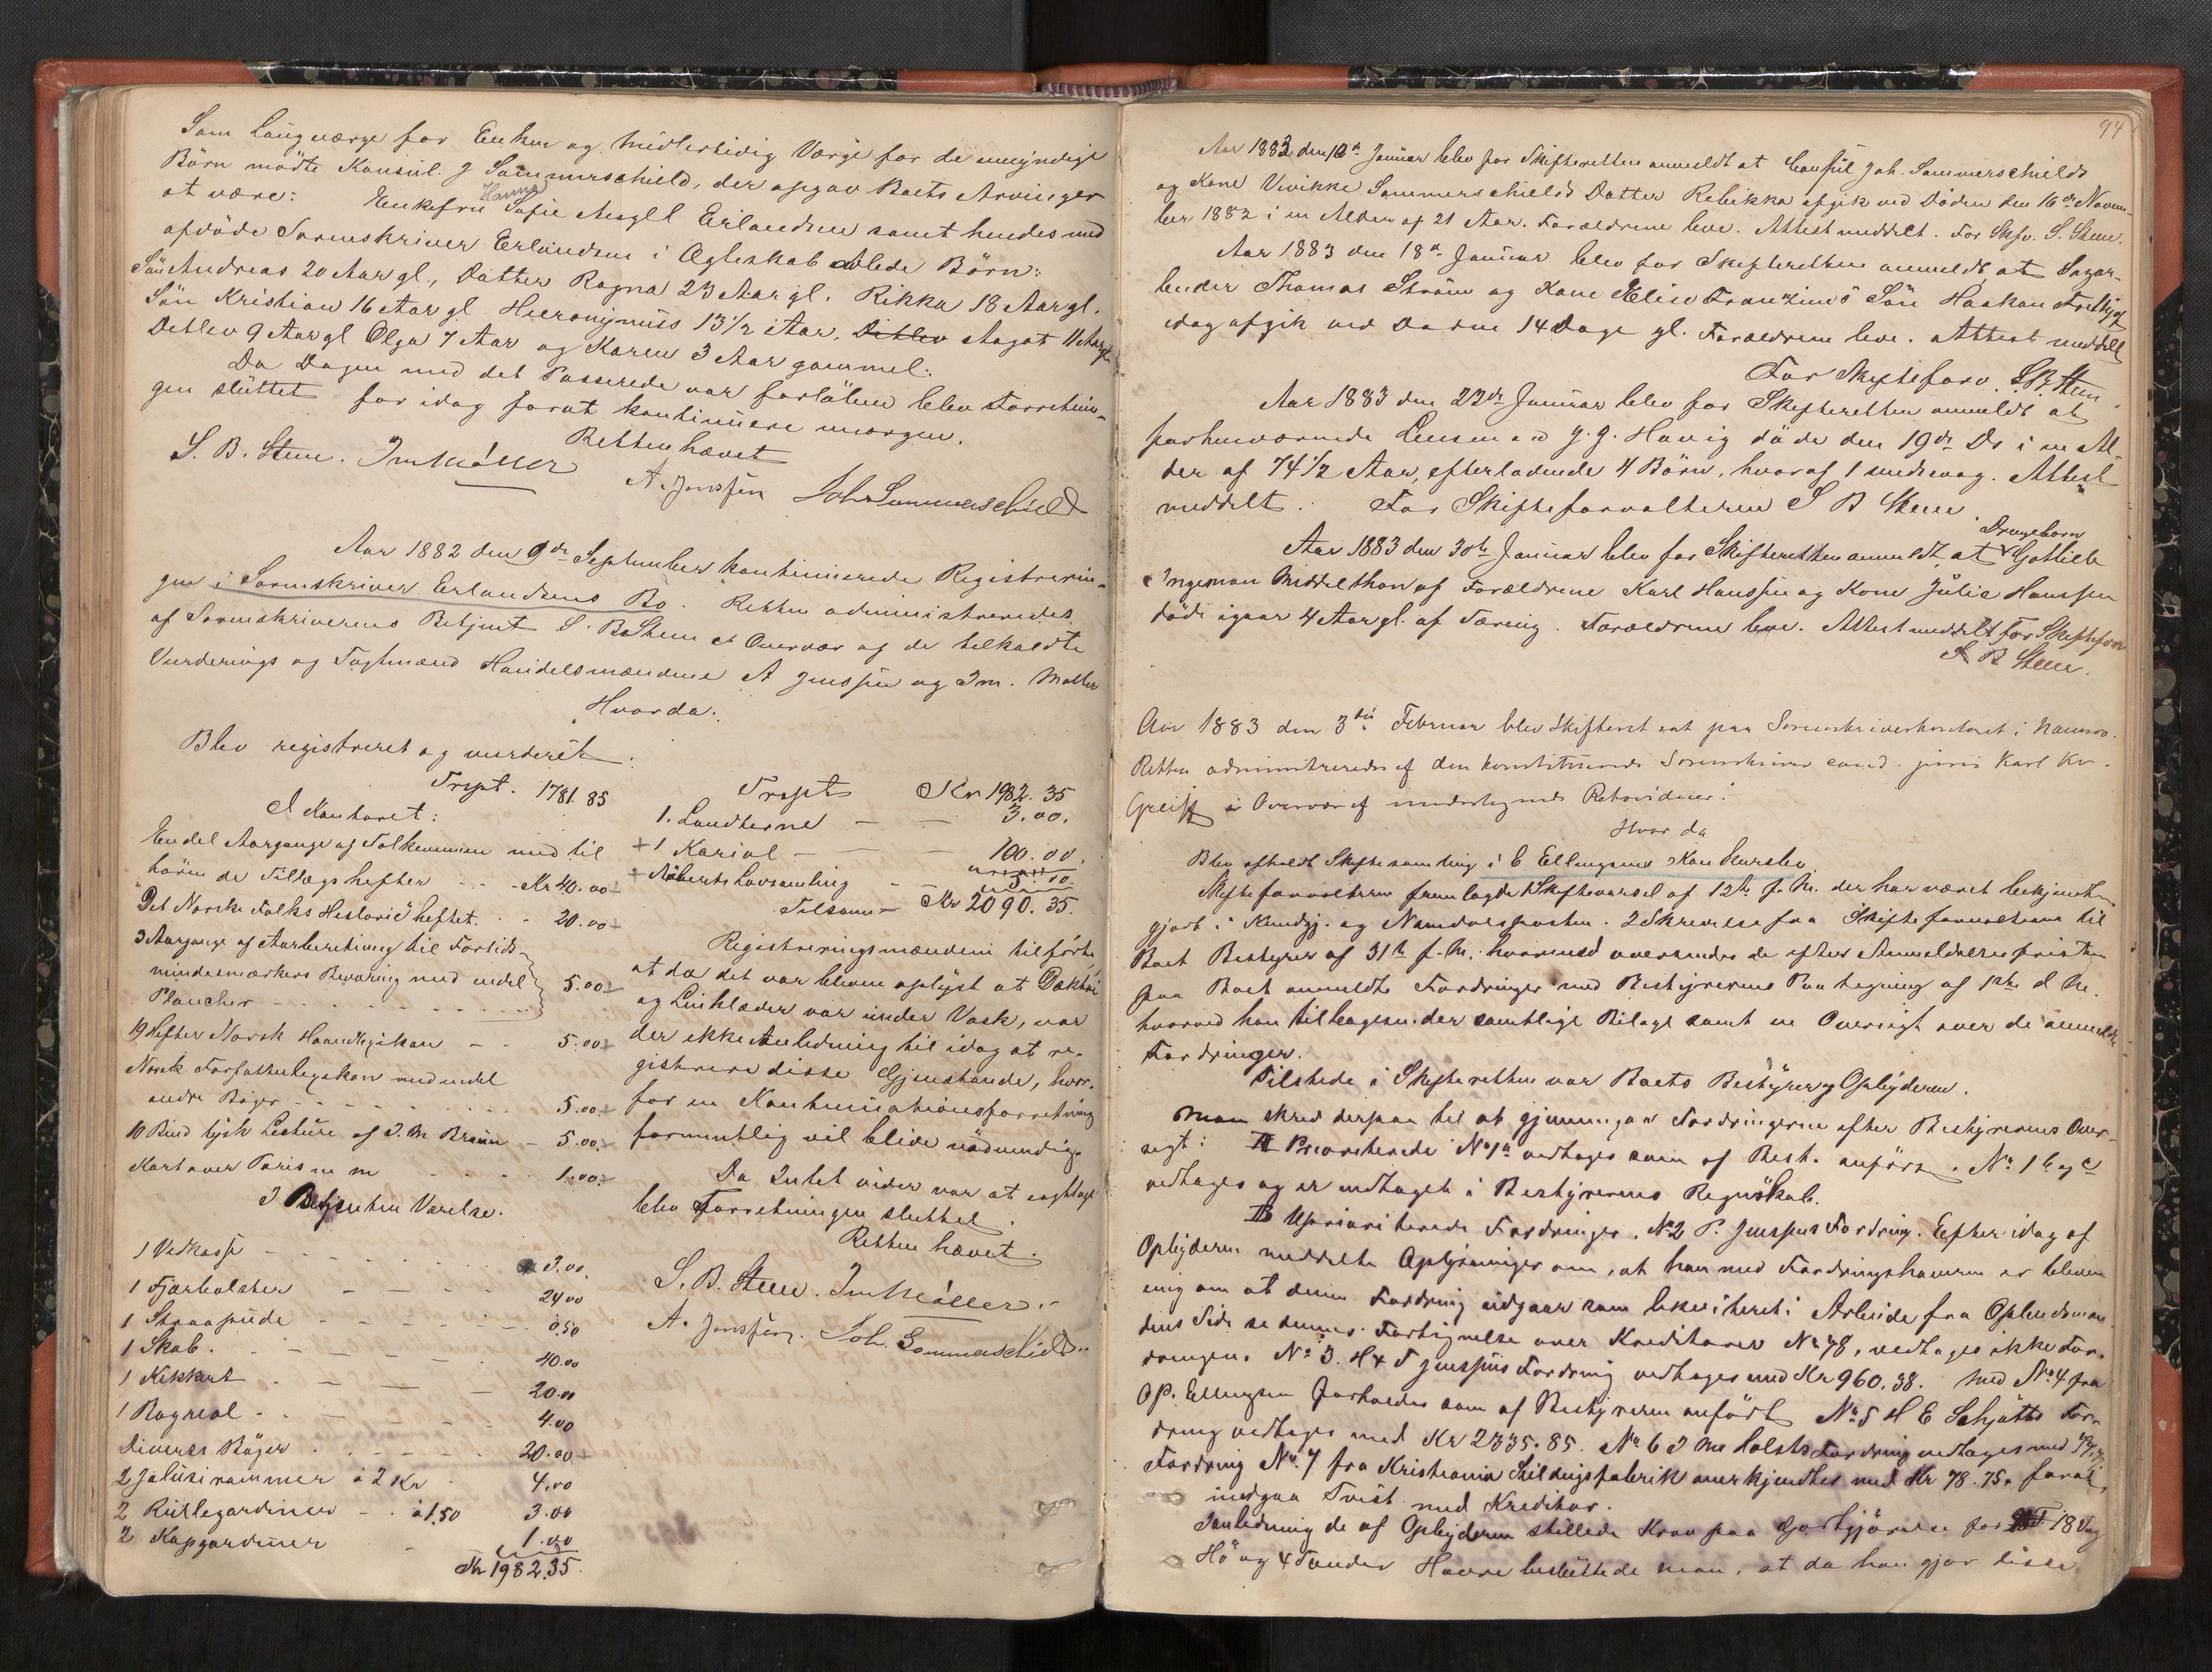 Som Laugværge for Enken og midlertidig Værge for de umyndige
Börn mödte Konsul J Sommerschield, der opgav Boets Arvinger
at være: Enkefru Hanna Sofie Aagot Erlandsen samt hendes med
afdöde Sorenskriver Erlandsen i Ægteskab avlede Börn:
Sön Andreas 20 Aar gl., Datter Ragna 23 Aar gl. Rikka 18 Aar gl.
Sön Kristian 16 Aar gl Hieronymus 13 1/2 Aar, Ditlev Aagot 11 Aar gl
Detlev 9 Aar gl Olga 7 Aar og Karen 3 Aar gammel.
Da Dagen med det Passerede var forlöben blev Forretnin-
gen sluttet for idag forat kontinuere imorgen.
Retten hævet
S. B. Steen. Im Möller
A. Jenssen Joh Sommerschield
Aar 1882 den 9de September kontinuerede Registrerin-
gen i Sorenskriver Erlandsens Bo. Retten administreredes
af Sorenskriverens Betjent S. B. Steen i Overvær af de tilkaldte
Vurderings og Tagtmænd Handelsmændene A Jenssen og Im. Møller
Hvorda:
Blev registreret og vurderet.
Trspt. 1781.85
I Kontoret:
En del Aargange af Folkevennen med til
hören de Tillægshefter - - - Kr 40.00
"Det Norske Folks Historie" heftet. - 20.00
3 Aargange af Aarberetning til Fortids-
mindesmærkers Bevaring med endel
Plancher - - - 5.00
19 Hefter Norsk Haandlexikon - - 5.00
Norsk Forfatterlexikon med endel
andre Bøger - - - 5.00
10 Bind tysk Lecture af I. M Braun - 5.00
Kart over Paris m m - - - 1.00
I Betjenten Værelse.
1 Vedkasse - - - 3.00.
1 Fjærbolster - - - 24 00
1 Straapude - - - 0.50
1 Skab. - - - 40.00
1 Kikkert - - - 20.00
1 Bogreol - - - 4.00
Diverse Bøger - - - 20.00
2 Jalusirammer à 2 Kr 4.00
2 Rullegardiner - à 1.50 3.00
2 Kapgardiner - 1.00
Kr 1982.35.
Trspt Kr 1982.35
1. Landterne - - 3.00.
+ 1 Kariol - - 100.00.
+ Mőberts Lovsamling - 5.00
Tilsam - Kr 2090.35.
Registreringsmændene tilførte,
at da det var bleven oplyst at Dæktöi
og Linklæder var under Vask, var
der ikke Anledning til idag at re-
gistrere disse Gjenstande, hvor-
for en Kontinuationsforretning
formentlig vil blive nödvendig.
Da Intet vider var at iagttage
blev Forretningen sluttet.
Retten hævet.
S. B. Steen. Im Möller.
A. Jenssen. Joh. Sommerschield.
94
Aar 1883 den 12te Januar blev for Skifteretten anmeldt at Consul Joh. Sommerschields
og Kone Vivikke Sommerschields Datter Rebikka afgik ved Döden den 16de Novem-
ber 1882 i en Alder af 21 Aar. Forældrene leve. Attest meddelt. For Skfv. S. Steen.
Aar 1883 den 18de Januar blev for Skifteretten anmeldt at Sagar-
beider Thomas Ström og Kone Elise Franzines Sön Haakon Frithjof
idag afgik ved Döden 14 Dage gl. Forældrene leve. Attest meddelt
For Skifteforv. S. B. Steen.
Aar 1883 den 22de Januar blev for Skifteretten anmeldt at
forhenværende Lensmand J. J. Havig döde den 19de Ds i en Al-
der af 74 1/2 Aar, efterladende 4 Börn, hvoraf 1 umyndig. Attest
meddelt. For Skifteforvalteren S B Steen
Aar 1883 den 30te Januar blev for Skifteretten anmeldt, at Drengebarn Gotlieb
Ingeman Middelthon af Forældrene Karl Hanssen og Kone Julie Hanssen
döde igaar 4 Aar gl. af Tæring. Forældrene leve. Attest meddelt For Skifteforv
S B Steen.
Aar 1883 den 3die Februar blev Skifteret sat paa Sorenskriverkontoret i Namsos.
Retten administreredes af den konstituerede Sorenskriver cand. juris Karl Kr.
Greiff i Overvær af undertegnede Retsvidner:
Hvor da
Blev afholdt Skiftesamling i C Ellingsens Konkursbo
Skifteforvalteren fremlagde 1 Skiftevarsel af 12te f. M. der har været bekjendt-
gjort i Kundgj. og Namdalsposten. 2 Skrivelse fra Skifteforvalteren til
Boet Bestyrer af 31te f. M. hvormed oversendes de efter Anmeldelsesfristen
paa Boet anmeldte Fordringer med Bestyrerens Paategning af 1ste d M.
hvorved han tilbagesender samtlige Bilage samt en Oversigt over de anmeldte
Fordringer.
Tilstede i Skifteretten var Boets Bestyrer og Opbyderen.
Man skred derpaa til at gjennemgaa Fordringerne efter Bestyrerens Over-
sigt: A Prioriterede No 1a vedtages som af Best. anført. No 1 b og c
vedtages og er medtaget i Bestyrerens Regnskab.
B Uprioriterede Fordringer. No 2 P. Jenssens Fordring. Efter idag af
Opbyderen meddelte Oplysninger om, at han med Fordringshaveren er bleven
enig om at denne Fordring udgaar som likvideret i Arbeide fra Opbudsman
dens Side se dennes Fortegnelse over Kreditorer No 48, vedtages ikke For-
dringen. No 3. H & T Jenssens Fordring vedtages med Kr 960.38. Med No 4 fra
O P. Ellingsen forholdes som af Bestyreren anført No 5 H E Schjötts For-
dring vedtages med Kr 2335.85. No 6 I M Holsts Fordring vedtages med
Fordring No. 7 fra Kristiania Seildugsfabrik anerkjendtes med Kr 78.75. forat
undgaa Tvist med Kreditor.
Ianledning de af Opbyderen stillede Krav paa Godtgjörelse for 18 Vog
Hö og 4 Tönder Havre besluttede man, at da han gjör disse